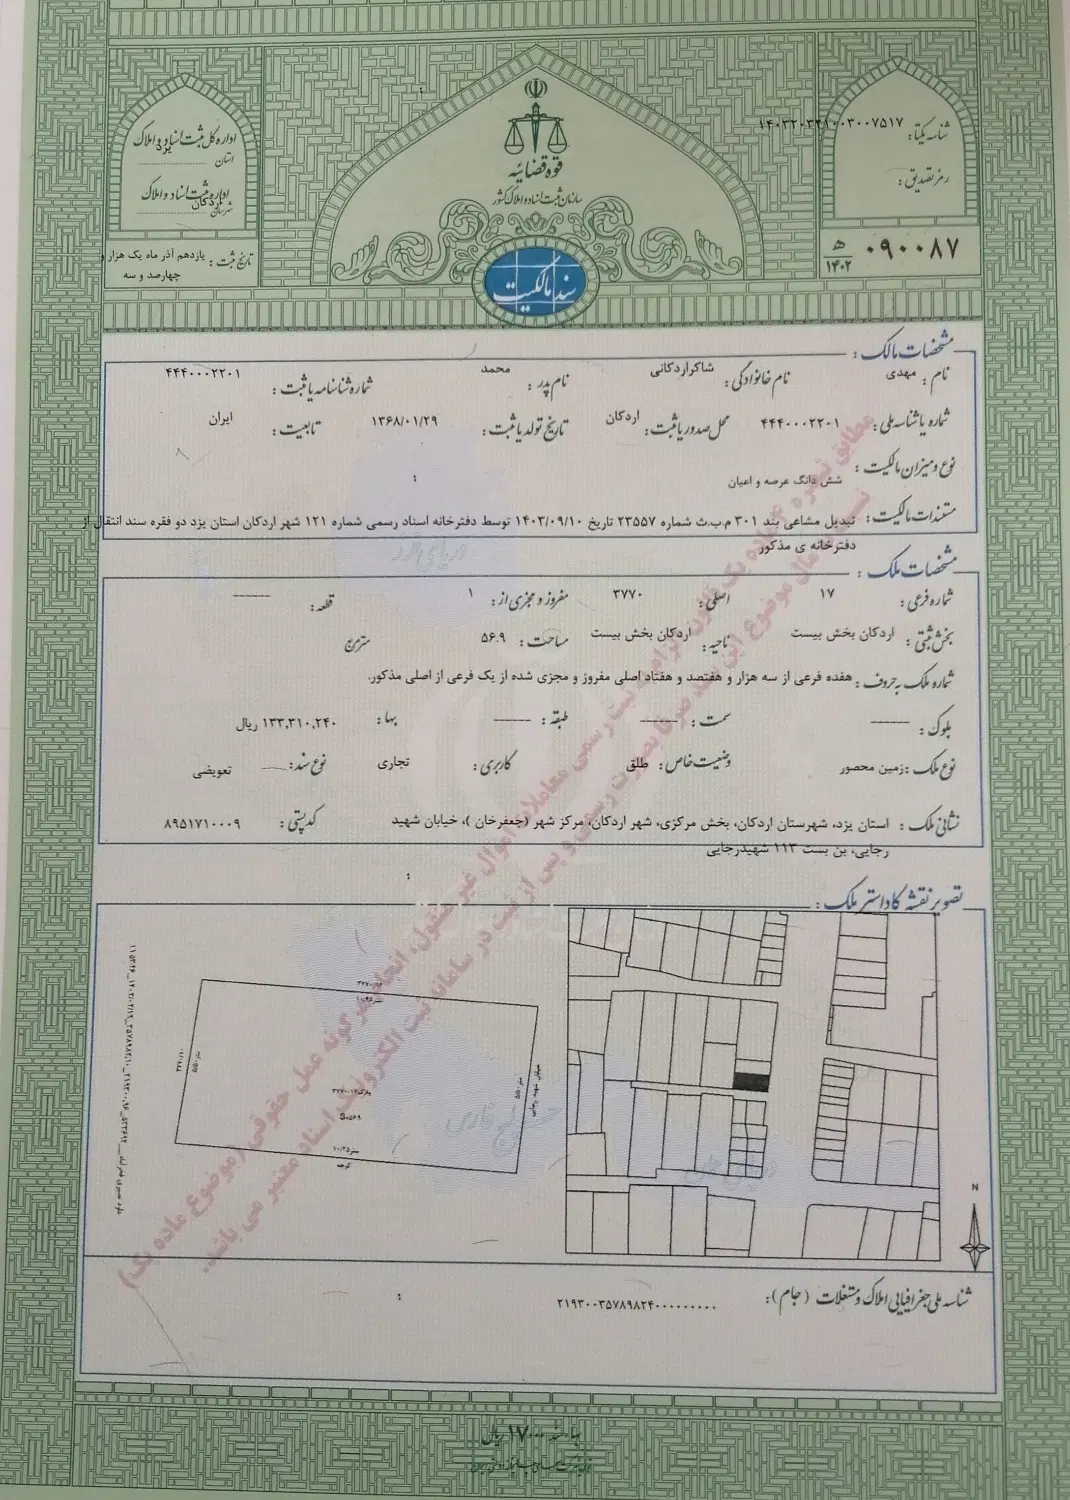 قوه قضائیه
سازمان ثبت اسناد و املاک کشور
سند مالکیت
شناسه یکتا:
رمز تصدیق:
۰۹۰۰۸۷
ه‍
۱۴۰۲
اداره کل ثبت اسناد و املاک
استان یزد
اداره ثبت اسناد و املاک
شهرستان اردکان
تاریخ ثبت: یازدهم آذر ماه یک هزار و
چهارصد و سه
مشخصات مالک:
نام: مهدی نام خانوادگی: شاکراردکانی نام پدر: محمد شماره شناسنامه یا ثبت: ۴۴۴۰۰۰۲۲۰۱
شماره یا شناسه ملی: ۴۴۴۰۰۰۲۲۰۱ محل صدور یا ثبت: اردکان تاریخ تولد یا ثبت: ۱۳۶۸/۰۱/۲۹ تابعیت: ایران
نوع و میزان مالکیت: شش دانگ عرصه و اعیان
مستندات مالکیت: تبدیل مشاعی بند ۳۰۱ م.ب.ث شماره ۲۳۵۵۷ تاریخ ۱۴۰۳/۰۹/۱۰ توسط دفترخانه اسناد رسمی شماره ۱۲۱ شهر اردکان استان یزد دو فقره سند انتقال از
دفترخانه ی مذکور
مشخصات ملک:
شماره فرعی: ۱۷ اصلی: ۳۷۷۰ مفروز و مجزی از: ۱ قطعه: ------
بخش ثبتی: اردکان بخش بیست ناحیه: اردکان بخش بیست مساحت: ۵۶.۹ مترمربع
شماره ملک به حروف: هفده فرعی از سه هزار و هفتصد و هفتاد اصلی مفروز و مجزی شده از یک فرعی از اصلی مذکور.
بلوک: ------ سمت: ------ طبقه: ------ بها: ۱۳۳,۳۱۰,۲۴۰ ریال
نوع ملک: زمین محصور وضعیت خاص: طلق کاربری: تجاری نوع سند: تعویضی
نشانی ملک: استان یزد، شهرستان اردکان، بخش مرکزی، شهر اردکان، مرکز شهر (جعفرخان )، خیابان شهید کدپستی: ۸۹۵۱۷۱۰۰۰۹
رجایی، بن بست ۱۱۳ شهیدرجایی
تصویر نقشه کاداستر ملک:
خیابان شهید رجایی
کوچه
N
دریای خزر
خلیج فارس
شناسه ملی جغرافیایی املاک و مستغلات (جام): ۲۱۹۳۰۰۳۵۷۸۹۸۲۴۰۰۰۰۰۰۰۰۰